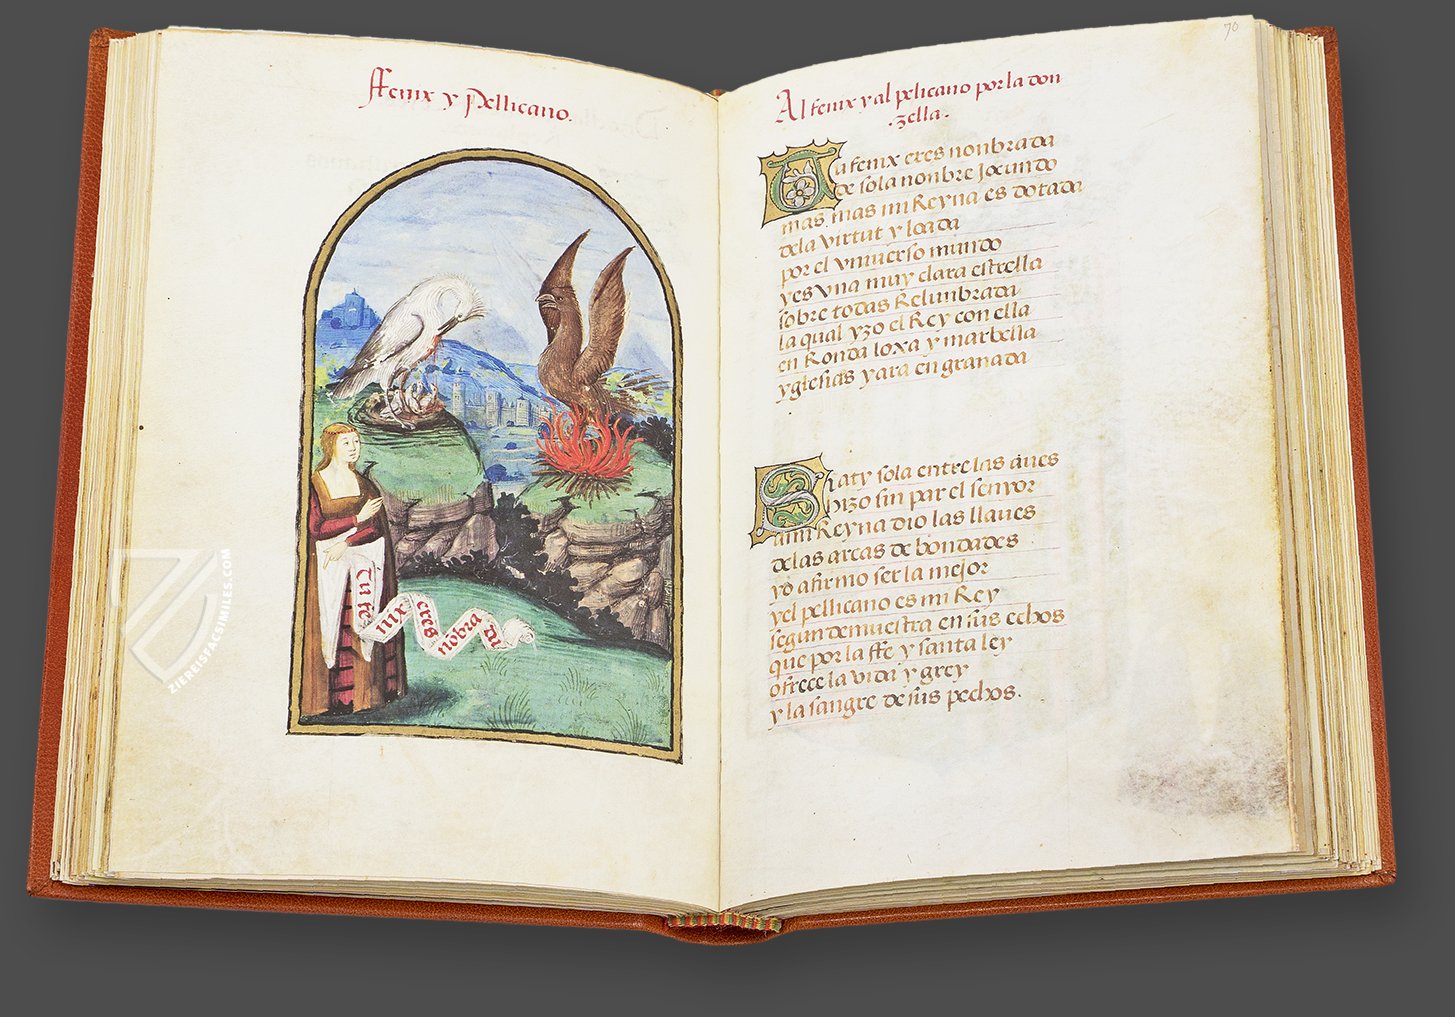 ffenix y pellicano.
Tu fe
nix
eres
nōbra
da
70
Al fenix y al pelicano por la don
·zella·
Tu fenix eres nonbrada
de sola nonbre Jocundo
mas, mas mi Reyna es dotada
dela virtut y loada
por el vniuerso mundo
y es vna muy clara estrella
sobre todas Relunbrada
la qual yzo el Rey con ella
en Ronda loxa y marbella
yglesias y ara en granada
Si aty sola entre las aues
hizo sin par el senyor
a mi Reyna dio las llaues
delas arcas de bondades
yo afirmo ser la mejor
y el pellicano es mi Rey
segun demuestra en sus echos
que por la ffe y santa ley
ofrece la vida y grey
y la sangre de sus pechos.
ZIEREISFACSIMILES.COM